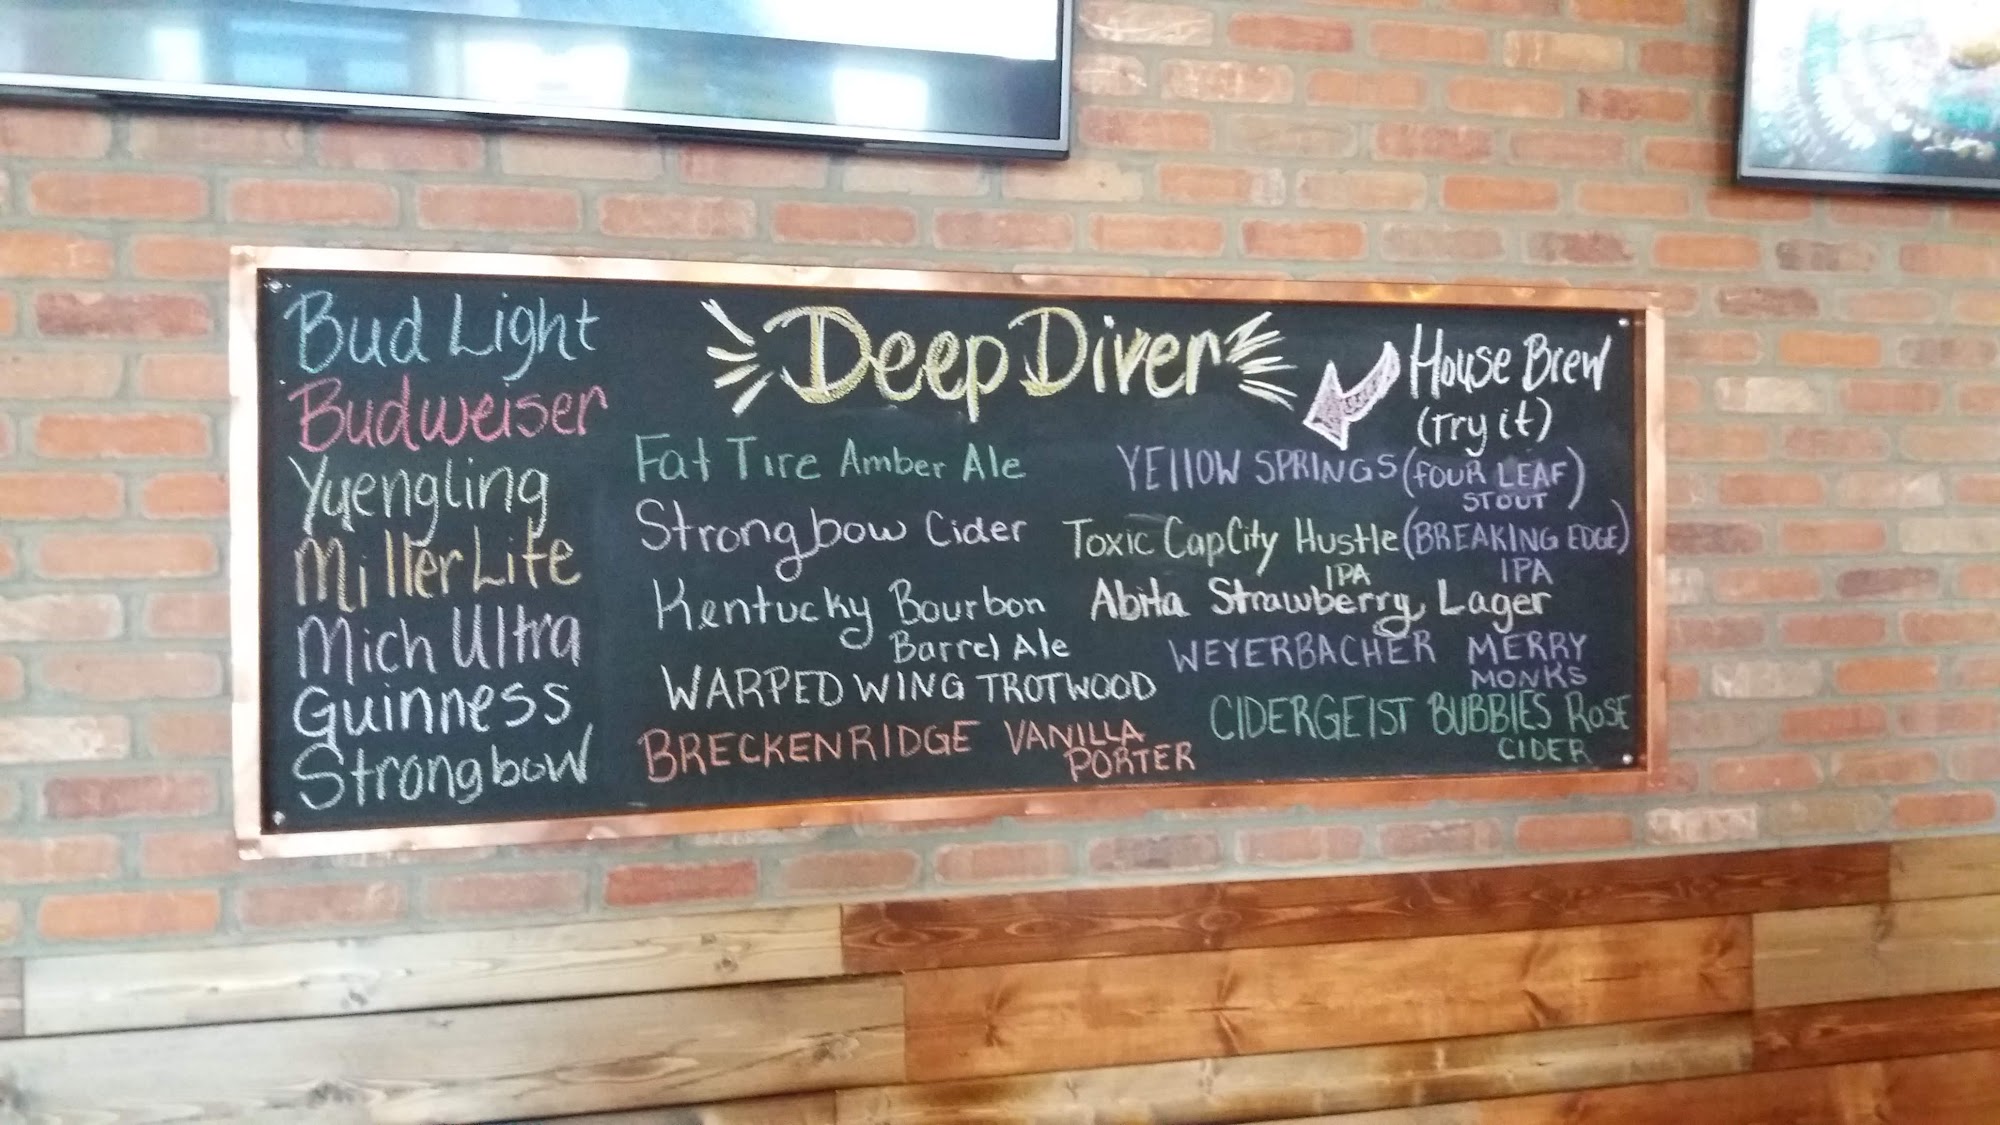 Bud Light
Budweiser
Yuengling
Miller Lite
Mich Ultra
Guinness
Strongbow
Deep Diver
House Brew
(Try it)
Fat Tire Amber Ale
Strongbow Cider
Kentucky Bourbon
Barrel Ale
WARPED WING TROTWOOD
BRECKENRIDGE VANILLA
PORTER
YEllOW SPRINGS (FOUR LEAF)
STOUT
Toxic CapCity Hustle (BREAKING EDGE)
IPA IPA
Abita Strawberry Lager
WEYERBACHER MERRY
MONKS
CIDERGEIST BUBBIES ROSE
CIDER